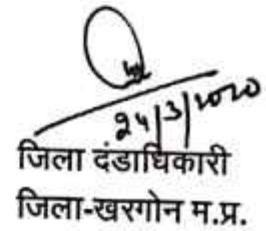 24/3/2020
जिला दंडाधिकारी
जिला-खरगोन म.प्र.